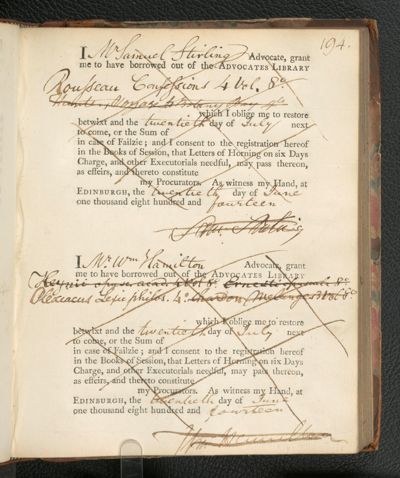 194.
I Mr Samuel Stirling Advocate, grant
me to have borrowed out of the ADVOCATES LIBRARY
Rousseau Confessions 4 Vol. 8o
which I oblige me to restore
betwixt and the twentieth day of July next
to come, or the Sum of
in case of Failzie; and I consent to the registration hereof
in the Books of Session, that Letters of Horning on six Days
Charge, and other Executorials needful, may pass thereon,
as effeirs, and thereto constitute
my Procurators. As witness my Hand, at
EDINBURGH, the twentieth day of June
one thousand eight hundred and fourteen
I Mr Wm Hamilton Advocate, grant
me to have borrowed out of the ADVOCATES LIBRARY
opusc. acad.
Lexiphiles. 4o melanges 3 vol 8o
which I oblige me to restore
betwixt and the twentieth day of July next
to come, or the Sum of
in case of Failzie; and I consent to the registration hereof
in the Books of Session, that Letters of Horning on six Days
Charge, and other Executorials needful, may pass thereon,
as effeirs, and thereto constitute
my Procurators. As witness my Hand, at
EDINBURGH, the twentieth day of June
one thousand eight hundred and fourteen